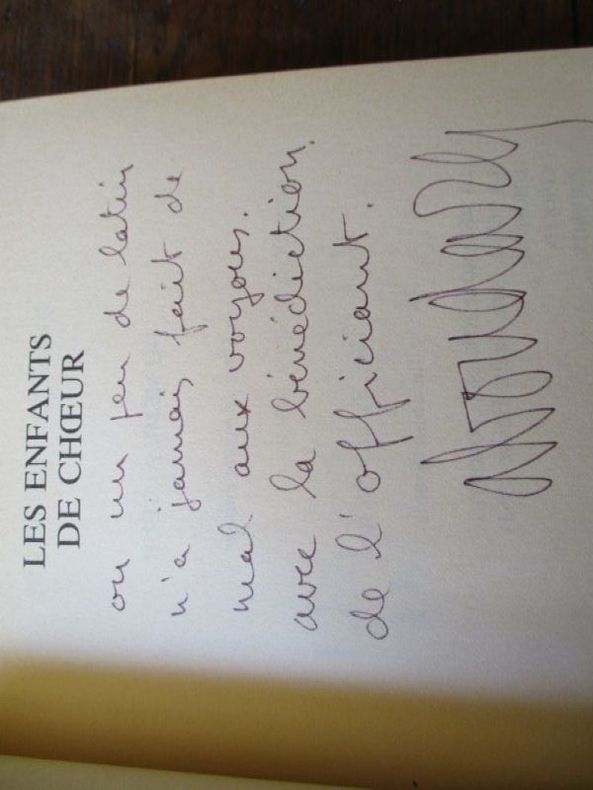 LES ENFANTS
DE CHŒUR
ou un peu de latin
n'a jamais fait de
mal aux voyous.
avec la bénédiction
de l'officiant.